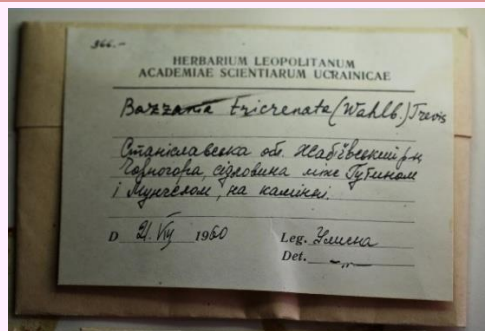 366.-
HERBARIUM LEOPOLITANUM
ACADEMIAE SCIENTIARUM UCRAINICAE
Bazzania tricrenata (Wahlb.) Trevis
Станіславська обл. Жабівський р-н
Чорногора, сідловина між Гутином
і Мунчелом, на камінні.
D 21. VII 1960 Leg. Улична
Det. –„–